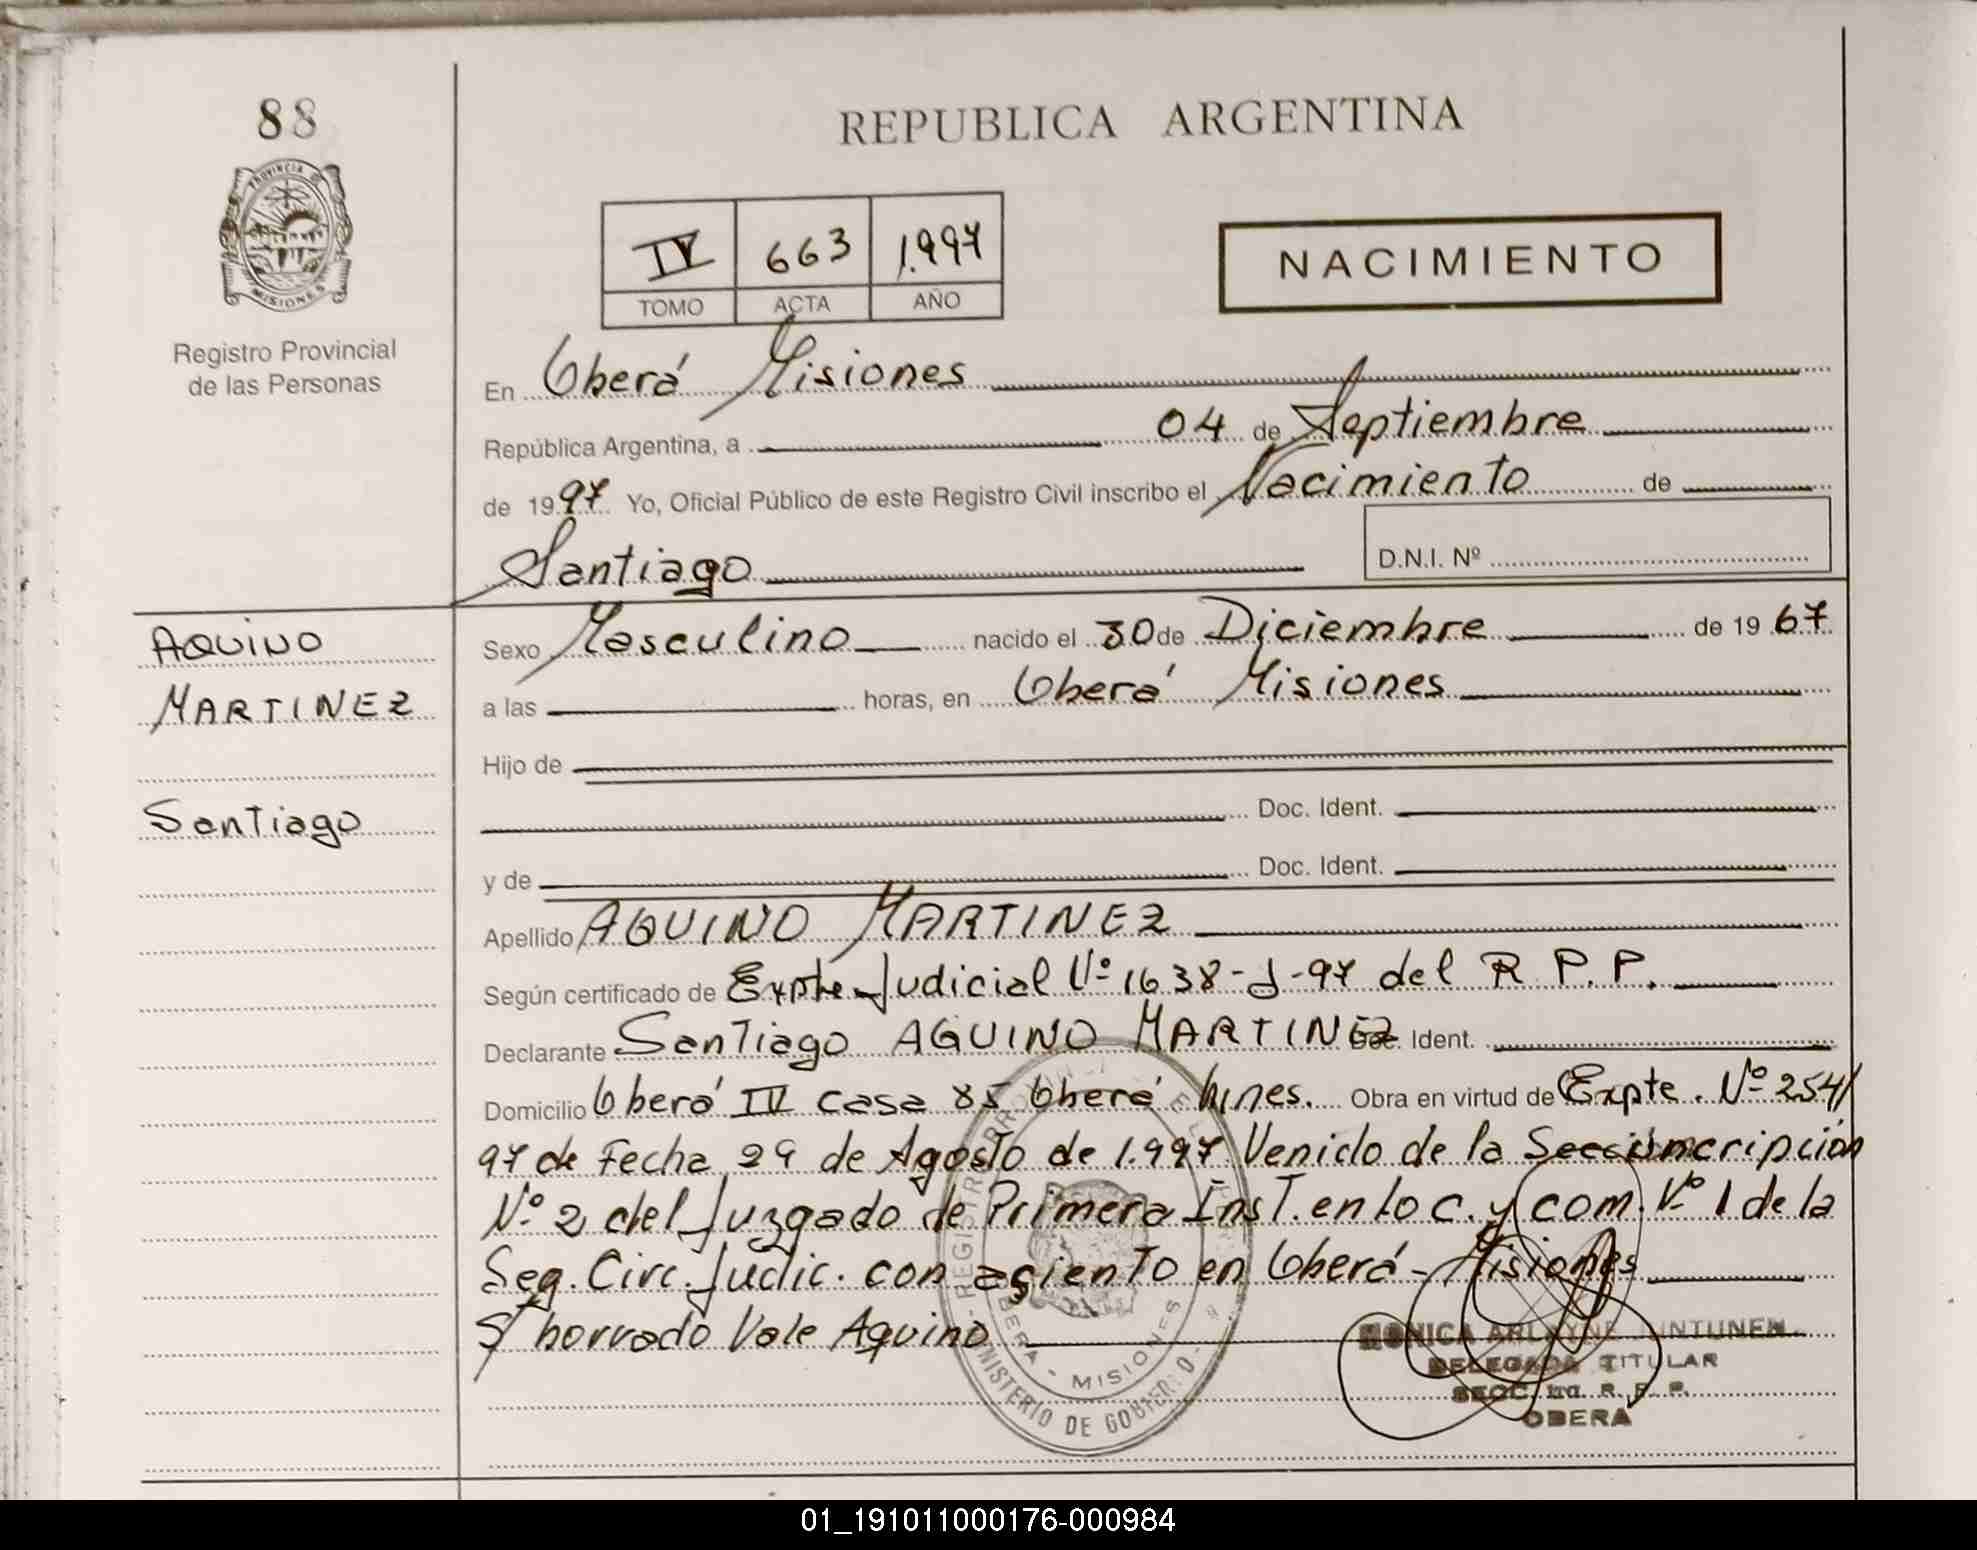 88
REPUBLICA ARGENTINA
PROVINCIA DE
MISIONES
Registro Provincial
de las Personas
IV 663 1.997
TOMO ACTA AÑO
NACIMIENTO
En Oberá Misiones
República Argentina, a 04 de Septiembre
de 1997 Yo, Oficial Público de este Registro Civil inscribo el Nacimiento de
Santiago D.N.I. Nº
AQUINO
MARTINEZ
Santiago
Sexo Masculino nacido el 30 de Diciembre de 1967
a las horas, en Oberá Misiones
Hijo de
Doc. Ident.
y de Doc. Ident.
Apellido AQUINO MARTINEZ
Según certificado de Expte Judicial Nº 1638-J-97 del R.P.P.
Declarante Santiago AQUINO MARTINEZ Doc. Ident.
Domicilio Oberá IV casa 85 Oberá Mnes. Obra en virtud de Expte. Nº 254/
97 de Fecha 29 de Agosto de 1.997 Venido de la Inscripción
Nº 2 del Juzgado de Primera Inst. en lo C. y Com. Nº 1 de la
Seg. Circ. Judic. con asiento en Oberá - Misiones
S/ borrado Vale Aquino
MINISTERIO DE GOBIERNO
OBERA - MISIONES
MONICA
DELEGADA TITULAR
SECC. R. P. P.
OBERA
01_191011000176-000984